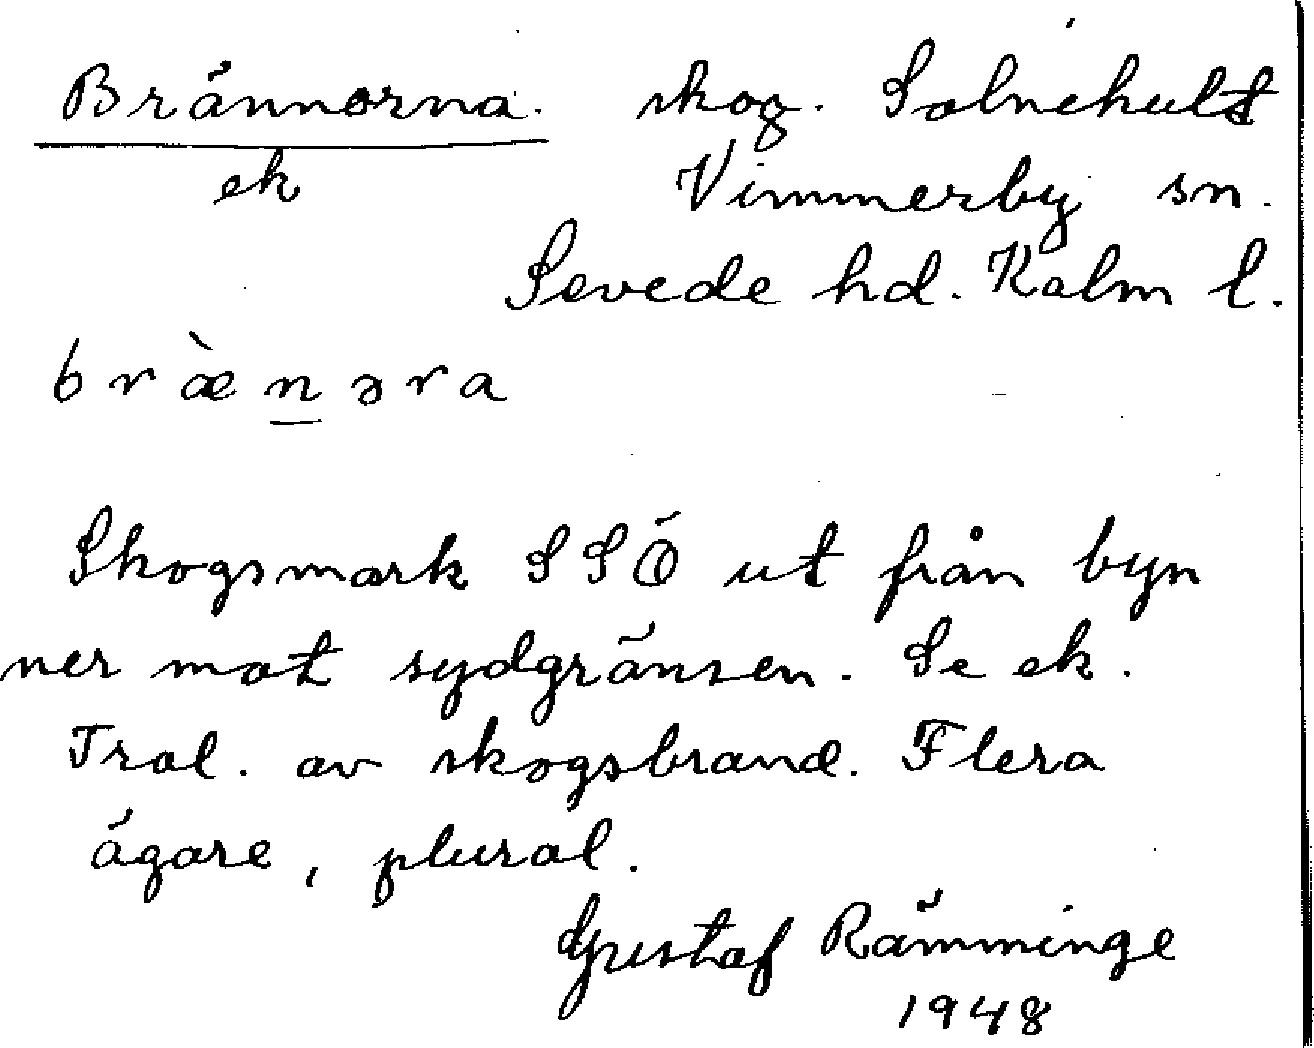 Brännorna. skog. Solnehult
ek Vimmerby sn.
Sevede hd. Kalm l.
bræ̀nəra
Skogsmark SSÖ ut från byn
ner mot sydgränsen. Se ek.
Trol. av skogsbrand. Flera
ägare, plural.
Gustaf Rämminge
1948